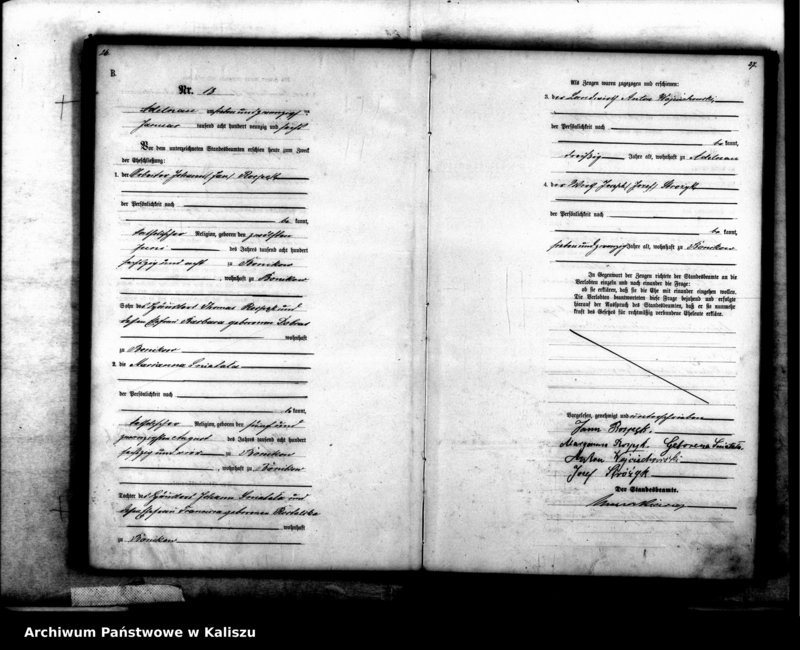 26.
B.
Nr. 13
Adelnau am siebenundzwanzigsten
Januar tausend acht hundert neunzig und sechs
Vor dem unterzeichneten Standesbeamten erschien heute zum Zweck
der Eheschließung:
1. der Johann Jan Rospęk
der Persönlichkeit nach
be kannt,
katholischer Religion, geboren den zwölften
Juni des Jahres tausend acht hundert
sechszig und acht zu Bonikow
, wohnhaft zu Bonikow
Sohn des Häusler Thomas Rospęk und
dessen Ehefrau Barbara geborenen
wohnhaft
zu Bonikow
2. die Marianna Smiatala
der Persönlichkeit nach
be kannt,
katholischer Religion, geboren den fünf und
zwanzigsten August des Jahres tausend acht hundert
siebzig und vier zu Bonikow
, wohnhaft zu Bonikow
Tochter des Häusler Johann Smiatala und
dessen Ehefrau Franzisca geborenen
wohnhaft
zu Bonikow
27.
Als Zeugen waren zugezogen und erschienen:
3. der Landwirth Anton Wojciechowski
der Persönlichkeit nach
be kannt,
dreißig Jahre alt, wohnhaft zu Adelnau
4. der Wirth Joseph Josef Stróżyk
der Persönlichkeit nach
be kannt,
siebenundzwanzig Jahre alt, wohnhaft zu Bonikow
In Gegenwart der Zeugen richtete der Standesbeamte an die
Verlobten einzeln und nach einander die Frage:
ob sie erklären, daß sie die Ehe mit einander eingehen wollen.
Die Verlobten beantworteten diese Frage bejahend und erfolgte
hierauf der Ausspruch des Standesbeamten, daß er sie nunmehr
kraft des Gesetzes für rechtmäßig verbundene Eheleute erkläre.
Vorgelesen, genehmigt und unterschrieben
Jann Rospęk.
Maryanna Rospęk. Geborena Smiatała.
Anton Wojciechowski
Josef Stróżyk
Der Standesbeamte.
Archiwum Państwowe w Kaliszu